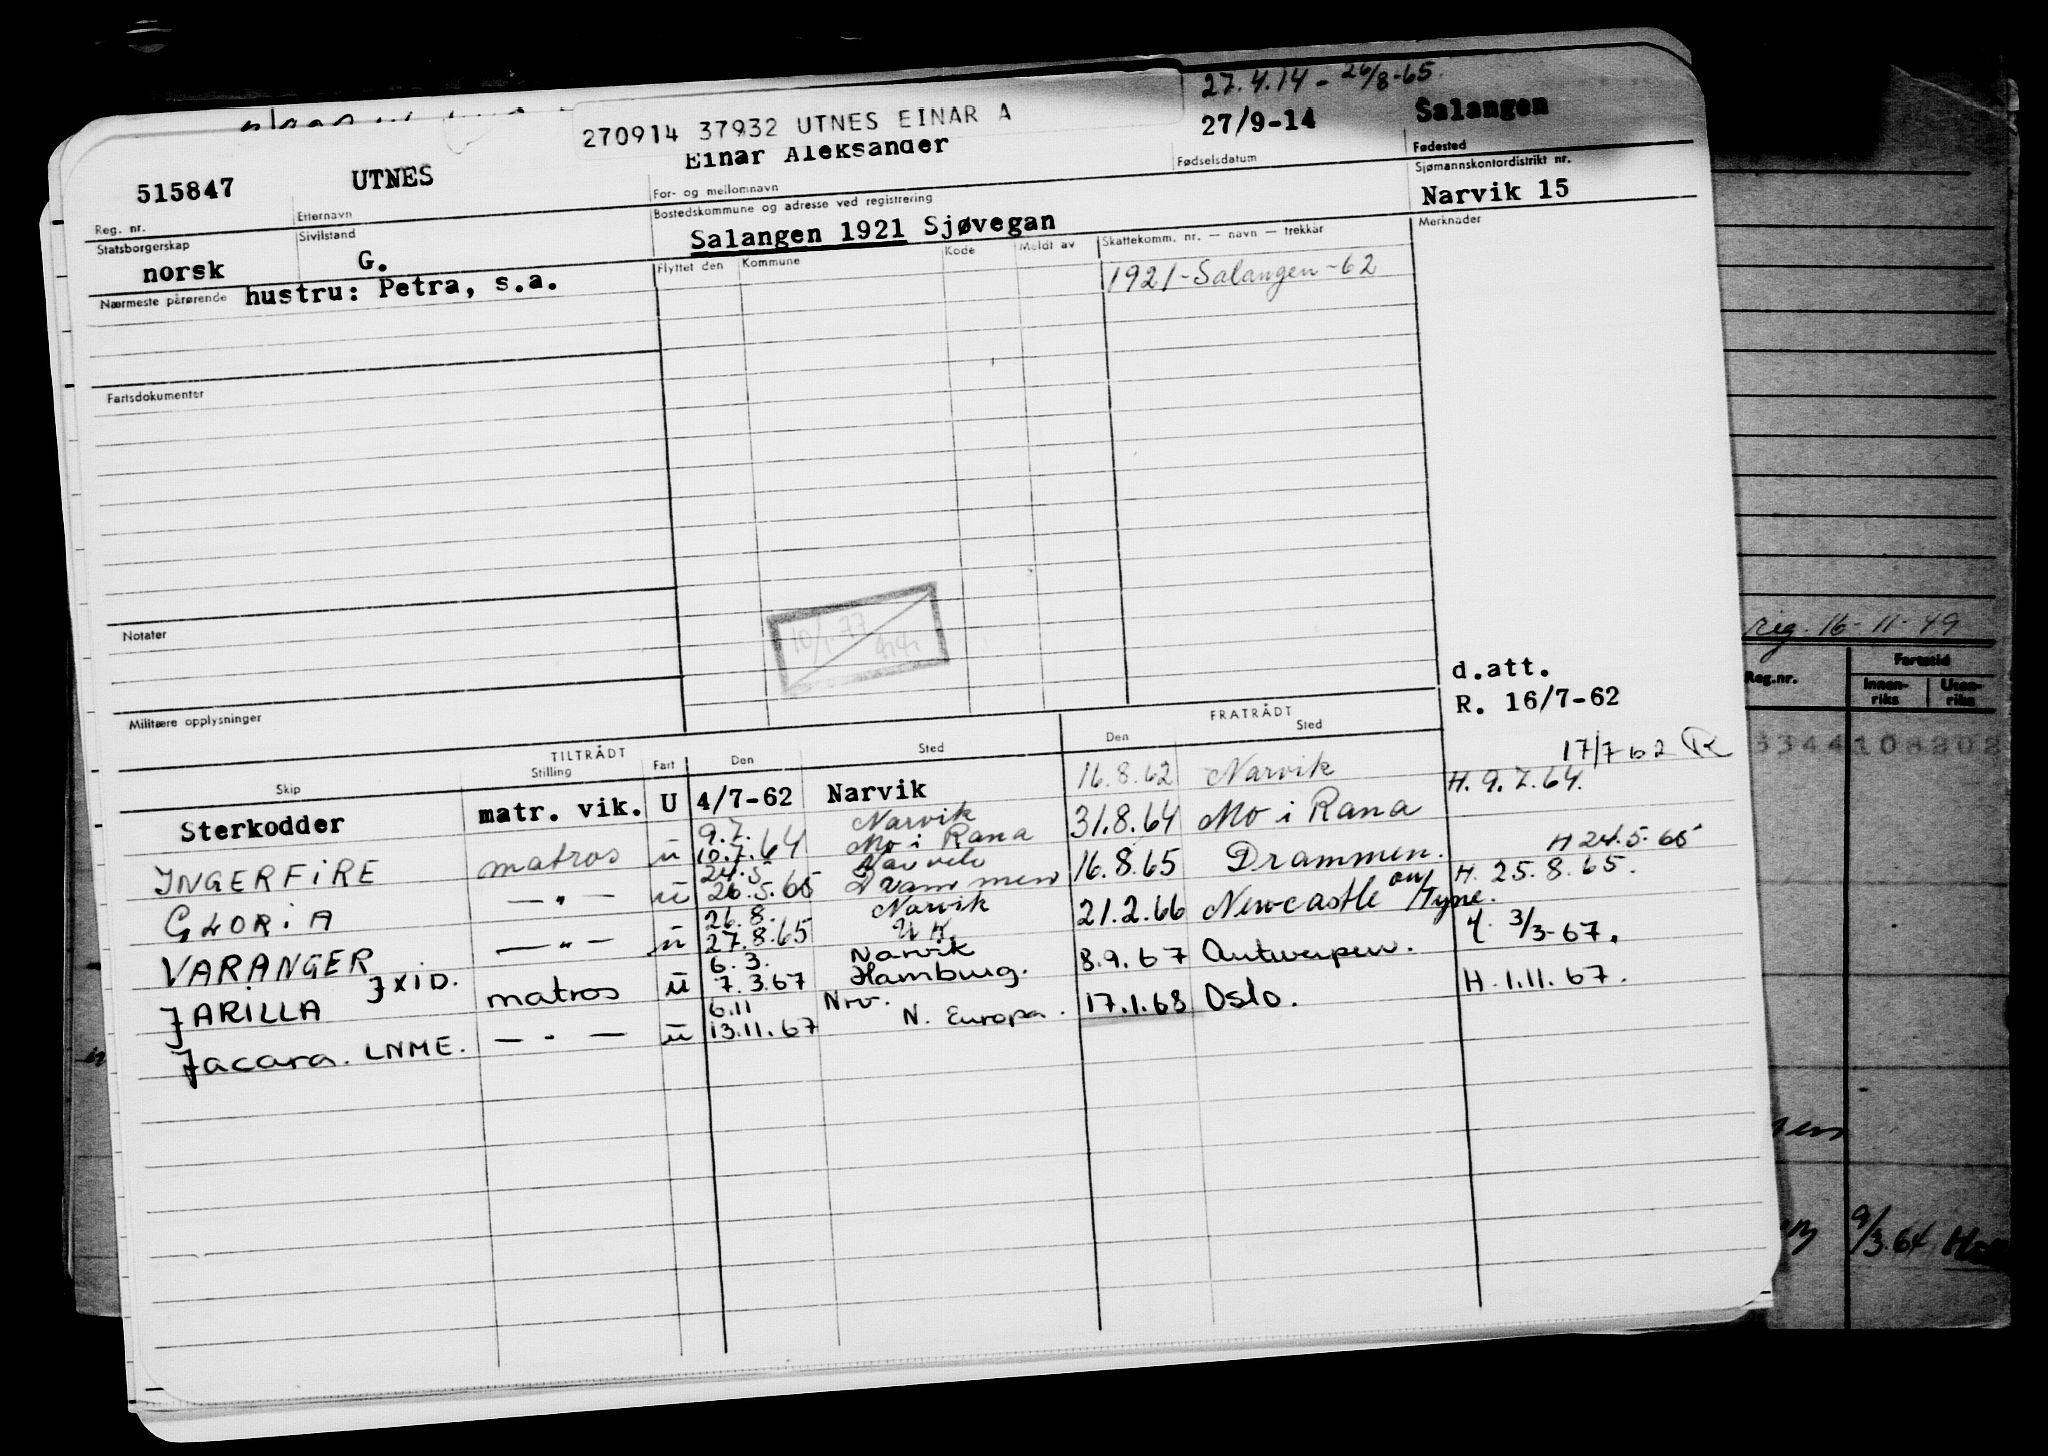 27.4.14 - 26/8-65.
270914 37932 UTNES EINAR A
27/9-14 Salangen
515847 UTNES Einar Aleksander
Fødselsdatum Fødested
Reg. nr. Etternavn For- og mellomnavn Sjømannskontordistrikt nr.
Statsborgerskap Sivilstand Bostedskommune og adresse ved registrering Narvik 15
norsk G. Salangen 1921 Sjøvegan Merknader
Nærmeste pårørende hustru: Petra, s.a. Flyttet den Kommune Kode Meldt av Skattekomm. nr. — navn — trekkår
1921-Salangen-62
Fartsdokumenter
Notater
10/1 77
rig. 16-11-49
d.att.
Reg.nr. Fartstid
Innen-riks Uten-riks
Militære opplysninger
R. 16/7-62
3344108202
TILTRÅDT FRATRÅDT
Skip Stilling Fart Den Sted Den Sted
17/7 62 R
Sterkodder matr. vik. U 4/7-62 Narvik 16.8.62 Narvik H. 9.7.64.
9.7. Narvik
INGERFIRE matros u 10.7.64 Mo i Rana 31.8.64 Mo i Rana H 24.5.65
24.5 Narvik
GLORIA — " — u 26.5.65 Drammen 16.8.65 Drammen. H. 25.8.65.
26.8. Narvik
VARANGER — " — u 27.8.65 U.K. 21.2.66 Newcastle on/Tyne.
3/3-67.
6.3. Narvik
JARILLA JXID. matros u 7.3.67 Hamburg. 8.9.67 Antwerpen. H. 1.11.67.
6.11 Nrv.
Jacara. LNME. — " — u 13.11.67 N. Europa. 17.1.68 Oslo.
9/3.64